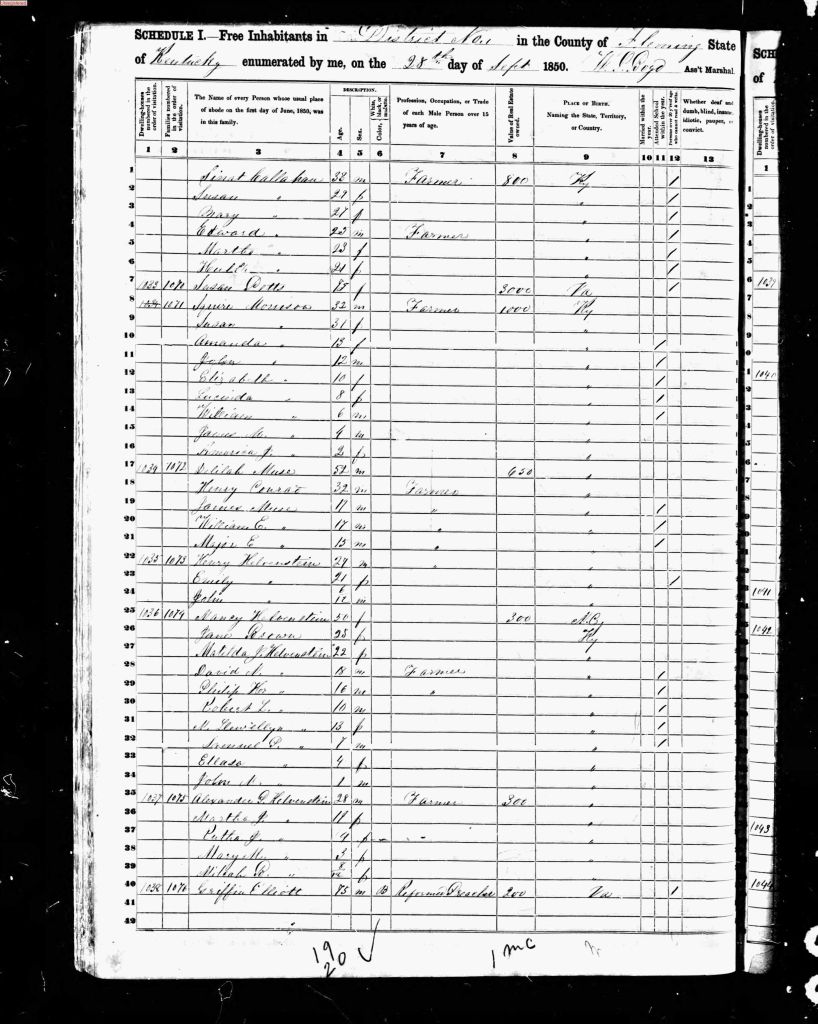 SCHEDULE I.—Free Inhabitants in District No. 1 in the County of Fleming State
of Kentucky enumerated by me, on the 28th day of Sept 1850. Boyd Ass't Marshal
Dwelling-houses numbered in the order of visitation.
Families numbered in the order of visitation.
The Name of every Person whose usual place of abode on the first day of June, 1850, was in this family.
DESCRIPTION.
Age.
Sex.
Color, White, black, or mulatto.
Profession, Occupation, or Trade of each Male Person over 15 years of age.
Value of Real Estate owned.
PLACE OF BIRTH. Naming the State, Territory, or Country.
Married within the year.
Attended School within the year.
Persons over 20 y'rs of age who cannot read & write.
Whether deaf and dumb, blind, insane, idiotic, pauper, or convict.
1 2 3 4 5 6 7 8 9 10 11 12 13
1 Callahan 32 m Farmer 800 Ky /
2 Susan " 29 f " /
3 Mary " 27 f " /
4 Edward " 25 m Farmer " /
5 Martha " 23 f " /
6 " 21 f " /
7 1033 1070 Susan 3000 Va /
8 1034 1071 Squire Morrison 32 m Farmer 1000 Ky
9 Susan " 31 f "
10 Amanda " 13 f " /
11 John " 12 m " /
12 Elizabeth " 10 f " /
13 Lucinda " 8 f " /
14 William " 6 m " /
15 James M. " 4 m "
16 America J. " 2 f "
17 1034 1072 Delilah Muse 52 m 650 "
18 Henry Conrad 32 m Farmer "
19 James Muse 19 m " " /
20 William E. " 17 m " " /
21 Major E " 15 m " " /
22 1035 1073 Henry Helvenstein 29 m " "
23 Emily " 21 f " /
24 John " m "
25 1036 1074 Nancy Helvenstein 50 f 300 N.C.
26 Jane Brown 28 f Ky
27 Matilda J. Helvenstein 22 f "
28 David N. " 18 m Farmer "
29 Philip " 16 m " " /
30 Robert L. " 10 m " /
31 " 13 f " /
32 Samuel P. " 7 m " /
33 " 4 f "
34 John N. " 1 m "
35 1037 1075 Alexander D. Helvenstein 28 m Farmer 300 "
36 Martha J. " f "
37 J. " 4 f "
38 Mary M. " 3 f "
39 R. " f "
40 1038 1076 Griffin Elliott 85 m B Reformer Preacher 200 Va /
41
42
19
20 ✓
1 mc
SCH
of
1
1039
1040
1041
1042
1043
1044